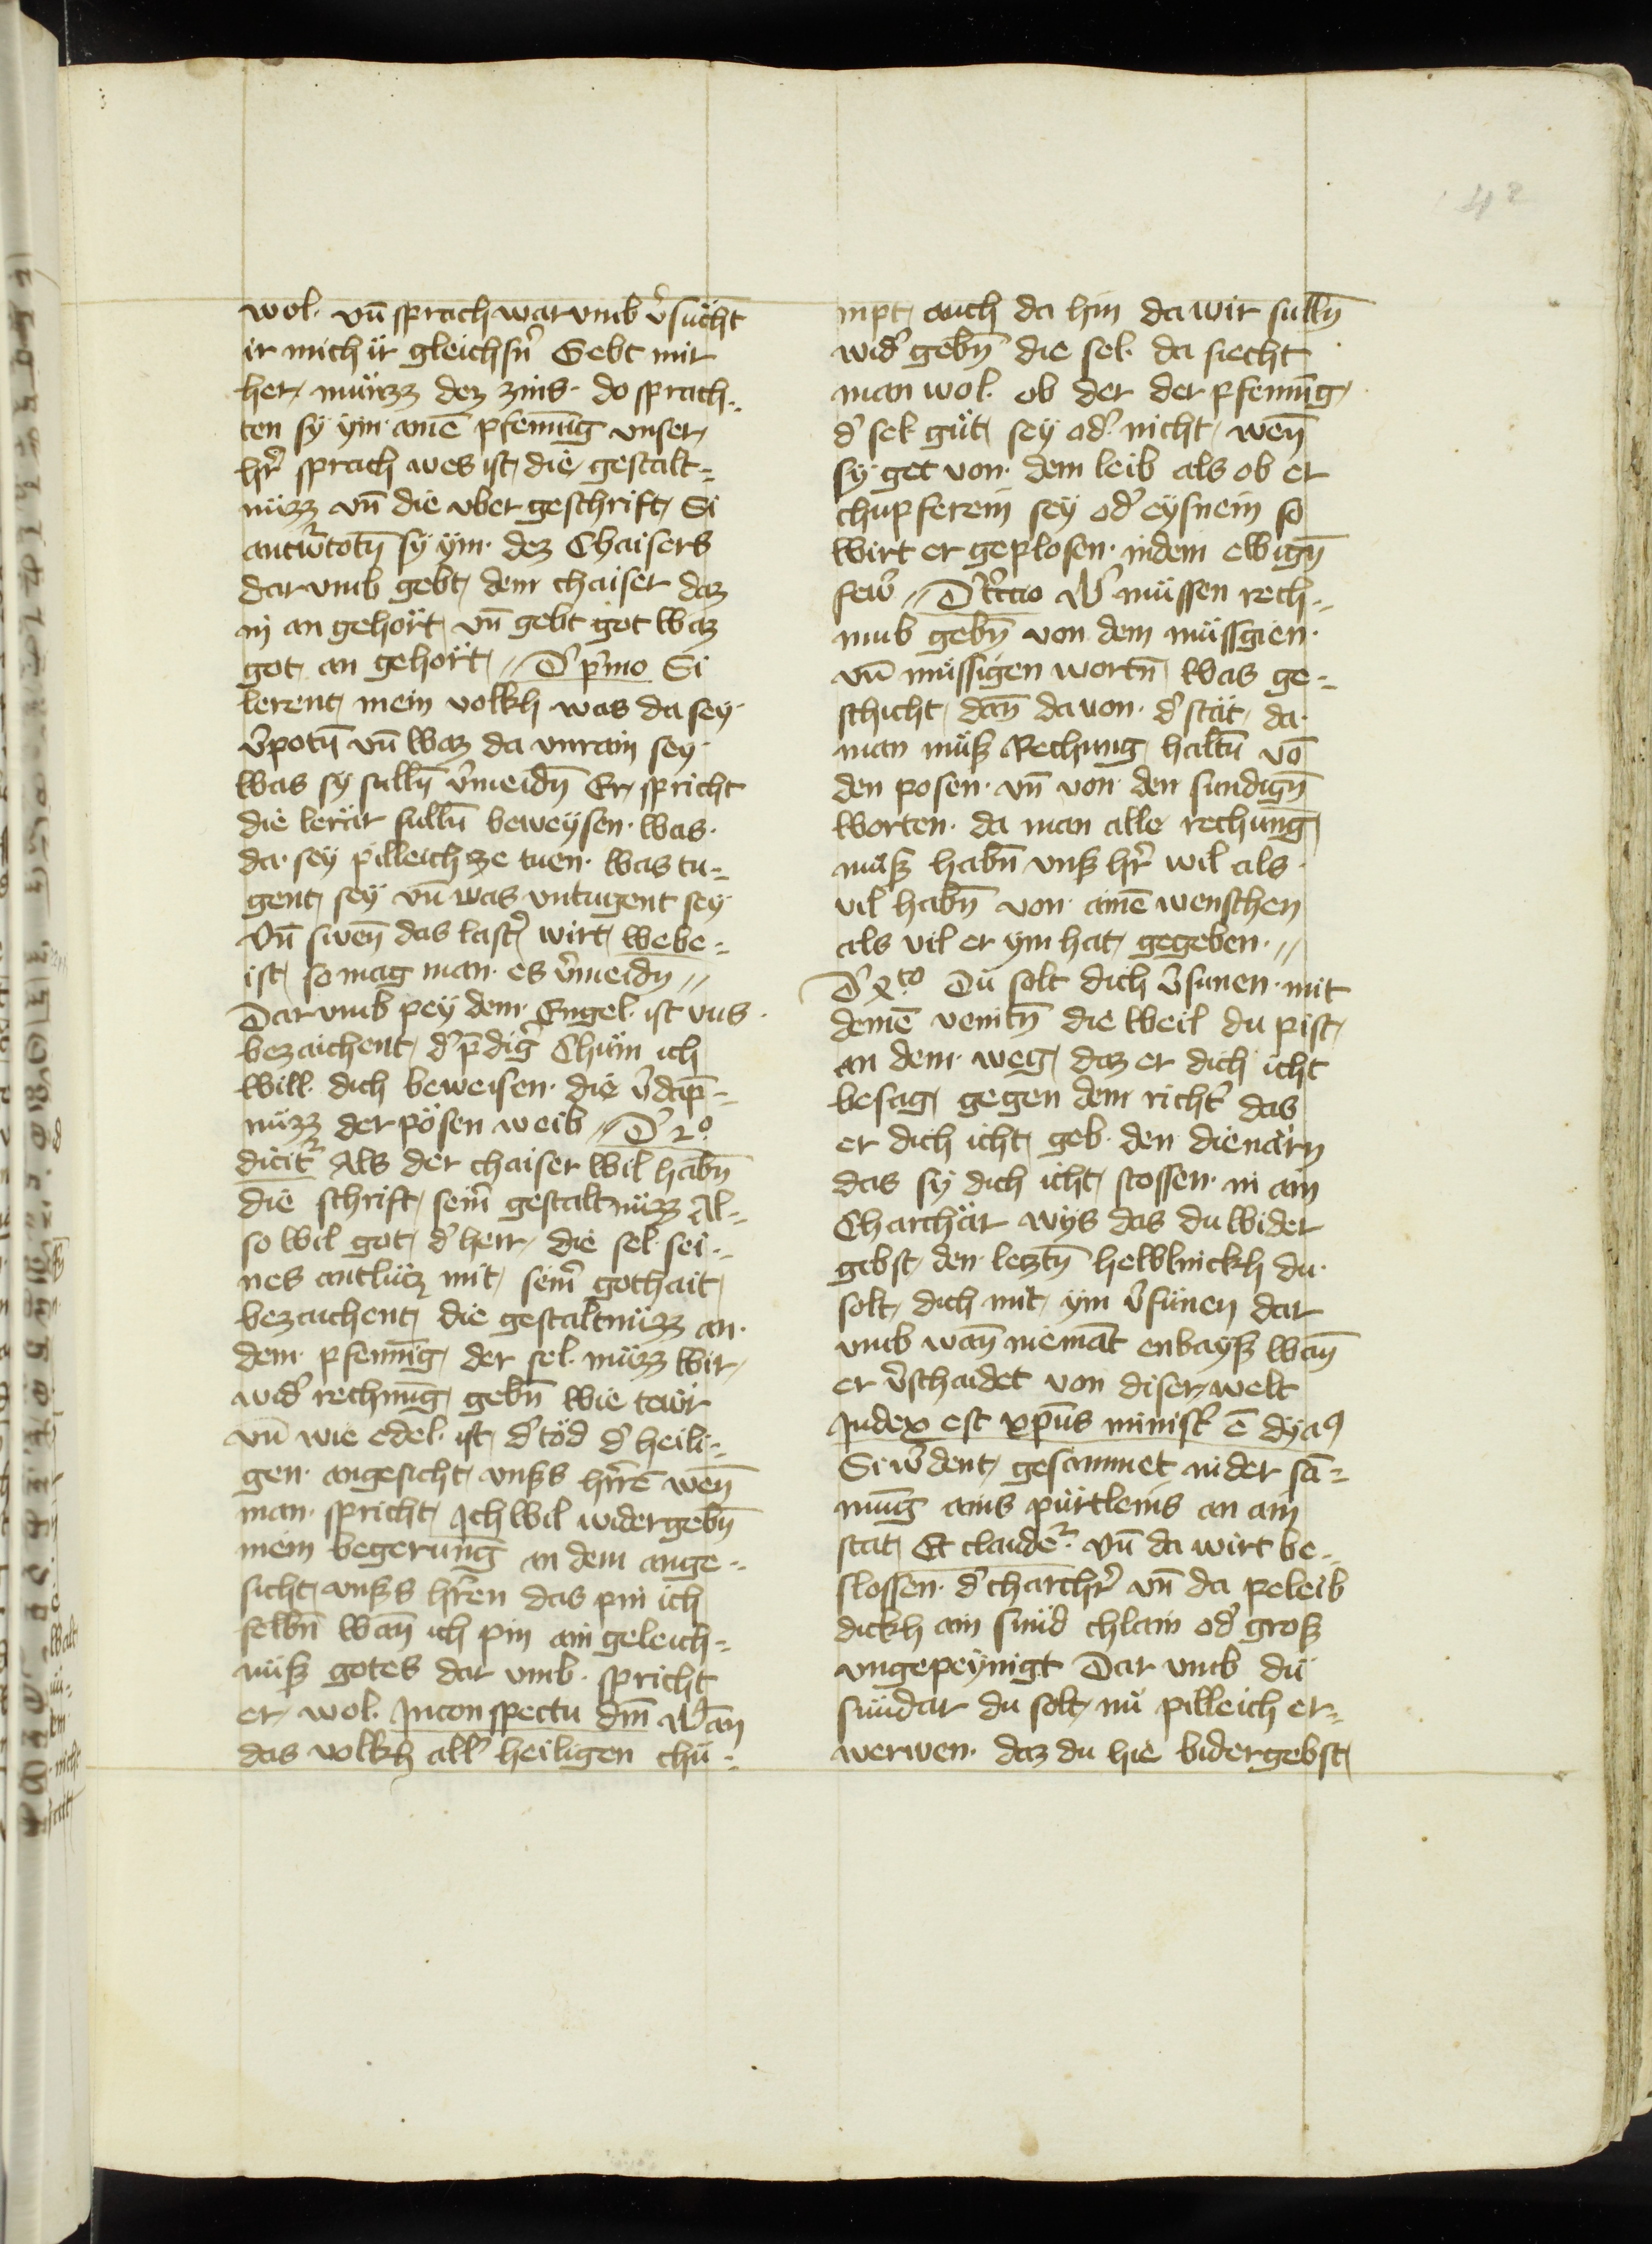 42
wol. vn̄ sprach warvmb v̓sücht
ir mich ir gleichsn̓ Gebt mir
her, münzz dez zins. do sprach„
ten sy ym. ainē pfenning vnser,
hr̓ sprach wes ist, die gestalt„
nüzz vn̄ die vber geschrift, Si
antw̓totn̄ sy ym. dez Chaisers
dar vmb gebt, dem chaiser daz
in an gehört, vn̄ gebt got waz
got, an gehört, „ D̓ p̓mo Si
lerent, mein volkh was da sey.
v̓potn̄ vn̄ waz da vnrain sey.
was sy sulln̄ v̓meidn̄ Er, spricht
die lerär sulln̄ beweysen. was.
da. sey pilleich ze tuen. was tu„
gent, sey vn̄ was vntugent sey.
Vn̄ swen̄ das last̓ wirt, webe„
ist, so mag man. es v̓meidn „
Dar vmb pey dem. Engel. ist vns.
bezaichent, d̓ p̄dig̓ Chüm ich
will. dich beweisen. die v̓dāp„
nüzz der pösen weib „ D̓ 2o.
dicit᷑ Als der chaiser wil habn̄
die schrift, sein̓ gestaltnüzz Al„
so wil got, d̓ herr, die sel. sei„
nes antlütz mit, sein̓ gothait,
bezaichent, die gestaltnüzz an.
dem. pfenning, der sel. müzz wir,
wid̓ rechnūg, gebn̄ wie tewr
vn̄ wie edel. ist, d̓ töd d̓ heili„
gen. angesicht, vnsß hr̄rē wen̄
man. spricht, Ich wil widergebn̄
mein begerung in dem ange„
sicht, vnsß hr̄en das pin ich
selbn̄ wan̄ ich pin ain geleich„
nüß gotes dar vmb. spricht
er, wol. In conspectu dm̄ Wan̄
das volkh all̓ heiligen chü„
mpt, auch da hin da wir sulln̄
wid̓ gebn̄ die sel. da siecht
man wol. ob der der pfennīg,
d̓ sel güt, sey od̓ nicht, wen̄
sy get von. dem leib als ob er
chupferein sey od̓ eysnein so
wirt er geplosen. in dem ewign̄
few̓ „ D̓ t̓ccio W̓ müssen rech„
nub gebn̄ von dem müssgien.
vn̄ müssigen wortn̄, was ge„
schicht, dan̄ da von. d̓ stät, da.
man müß Rechung, haltn̄ vō
den posen. vn̄ von den sundign̄
worten. da man alle rechūng,
müß habn̄ vnß hr̓ wil als.
vil habn̄ von. ainē wenschen
als vil er ym hat, gegeben. „
D̓ xto Du solt dich v̓sunen. mit
deinē veintn̄ die weil du pist,
an dem. weg, daz er dich icht
besag, gegen dem richt̓ das
er dich icht, geb. den dienärn
das sy dich icht, stossen. in ain
Charchär wys das du wider
gebst, den. lestn̄ helblinckh du.
solt, dich mit, ym v̓sünen dar
vmb wan̄ niemāt enbayß wan̄
er v̓schaidet von diser, welt
Judex est xp̄us minist̓ ē dya9
Si w̓dent, gesammet in der sā„
mūng ains pürtleins an ain
stat, Et claude᷑. Vn̄ da wirt be„
slossen. d̓ charchr̓ vn̄ da peleib
dickh ain sünd chlain od̓ groß
vngepeynigt Dar vmb dü
sündar du solt, nü pilleich er„
werwen. daz du hie bidergebst,